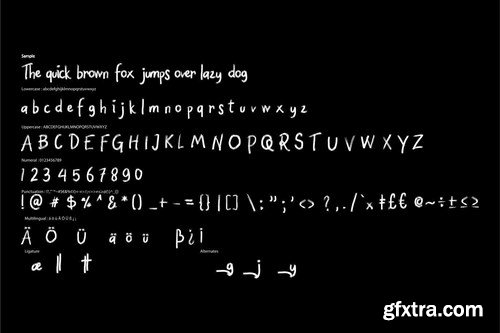 Sample
The quick brown fox jumps over lazy dog
Lowercase : abcdefghijklmnopqrstuvwxyz
a b c d e f g h i j k l m n o p q r s t u v w x y z
Uppercase : ABCDEFGHIJKLMNOPQRSTUVWXYZ
A B C D E F G H I J K L M N O P Q R S T U V W X Y Z
Numeral : 0123456789
1 2 3 4 5 6 7 8 9 0
Punctuation :
! @ # $ % ^ & * ( ) _ + - = { } | [ ] \ : " ; ' < > ? , . / ` x ₤ £ € @ ~ ÷ ± ≤ ≥
Multilingual :
Ä Ö Ü ä ö ü β ¿ ¡
Ligature Alternates
æ ll tt _g _j _y
gfxtra.com